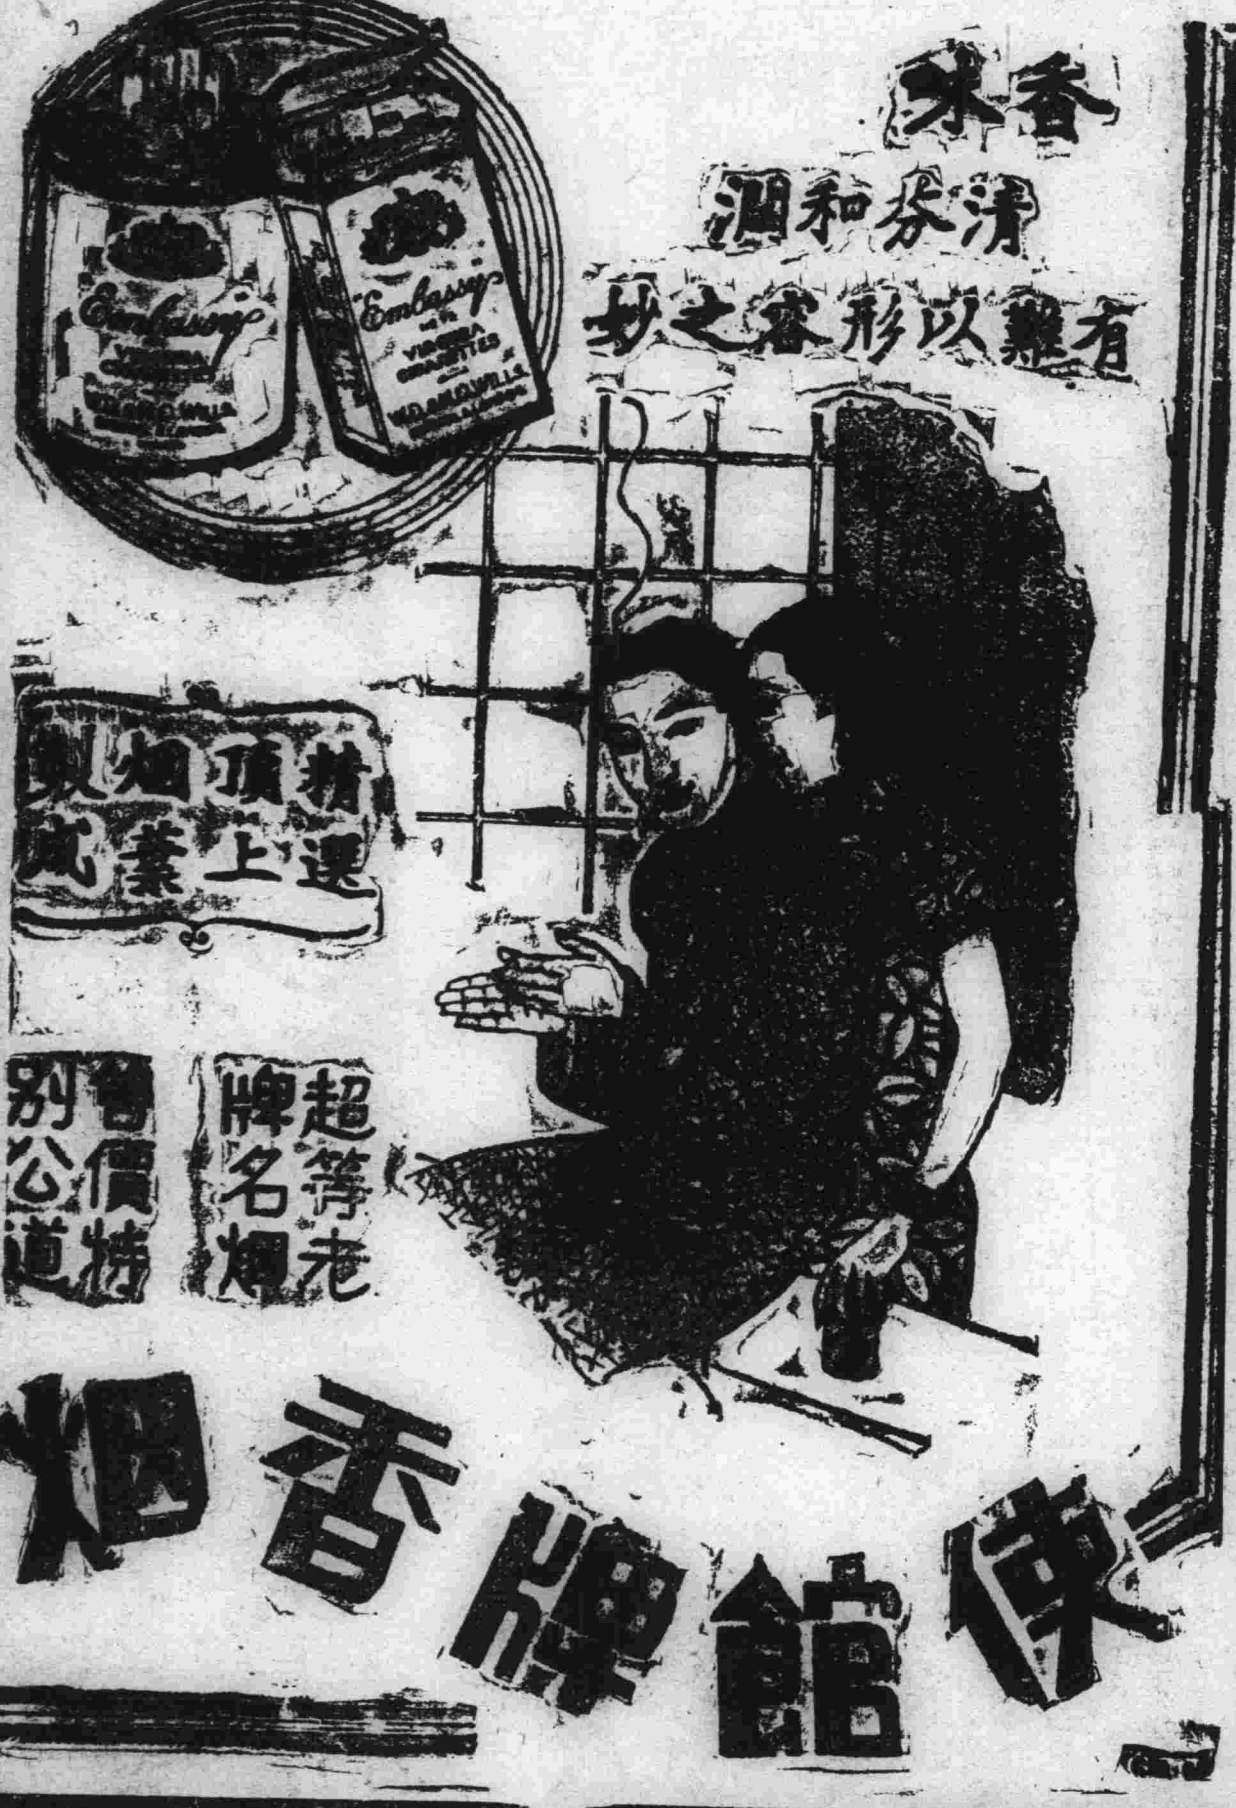 香味
清芬和潤
有難以形容之妙
Embassy
VIRGINIA
CIGARETTES
W.D. & H.O. WILLS
Embassy
VIRGINIA
CIGARETTES
W.D. & H.O. WILLS
精頂烟製
選上葉成
超等老
牌名烟
售價特
別公道
使館牌香烟